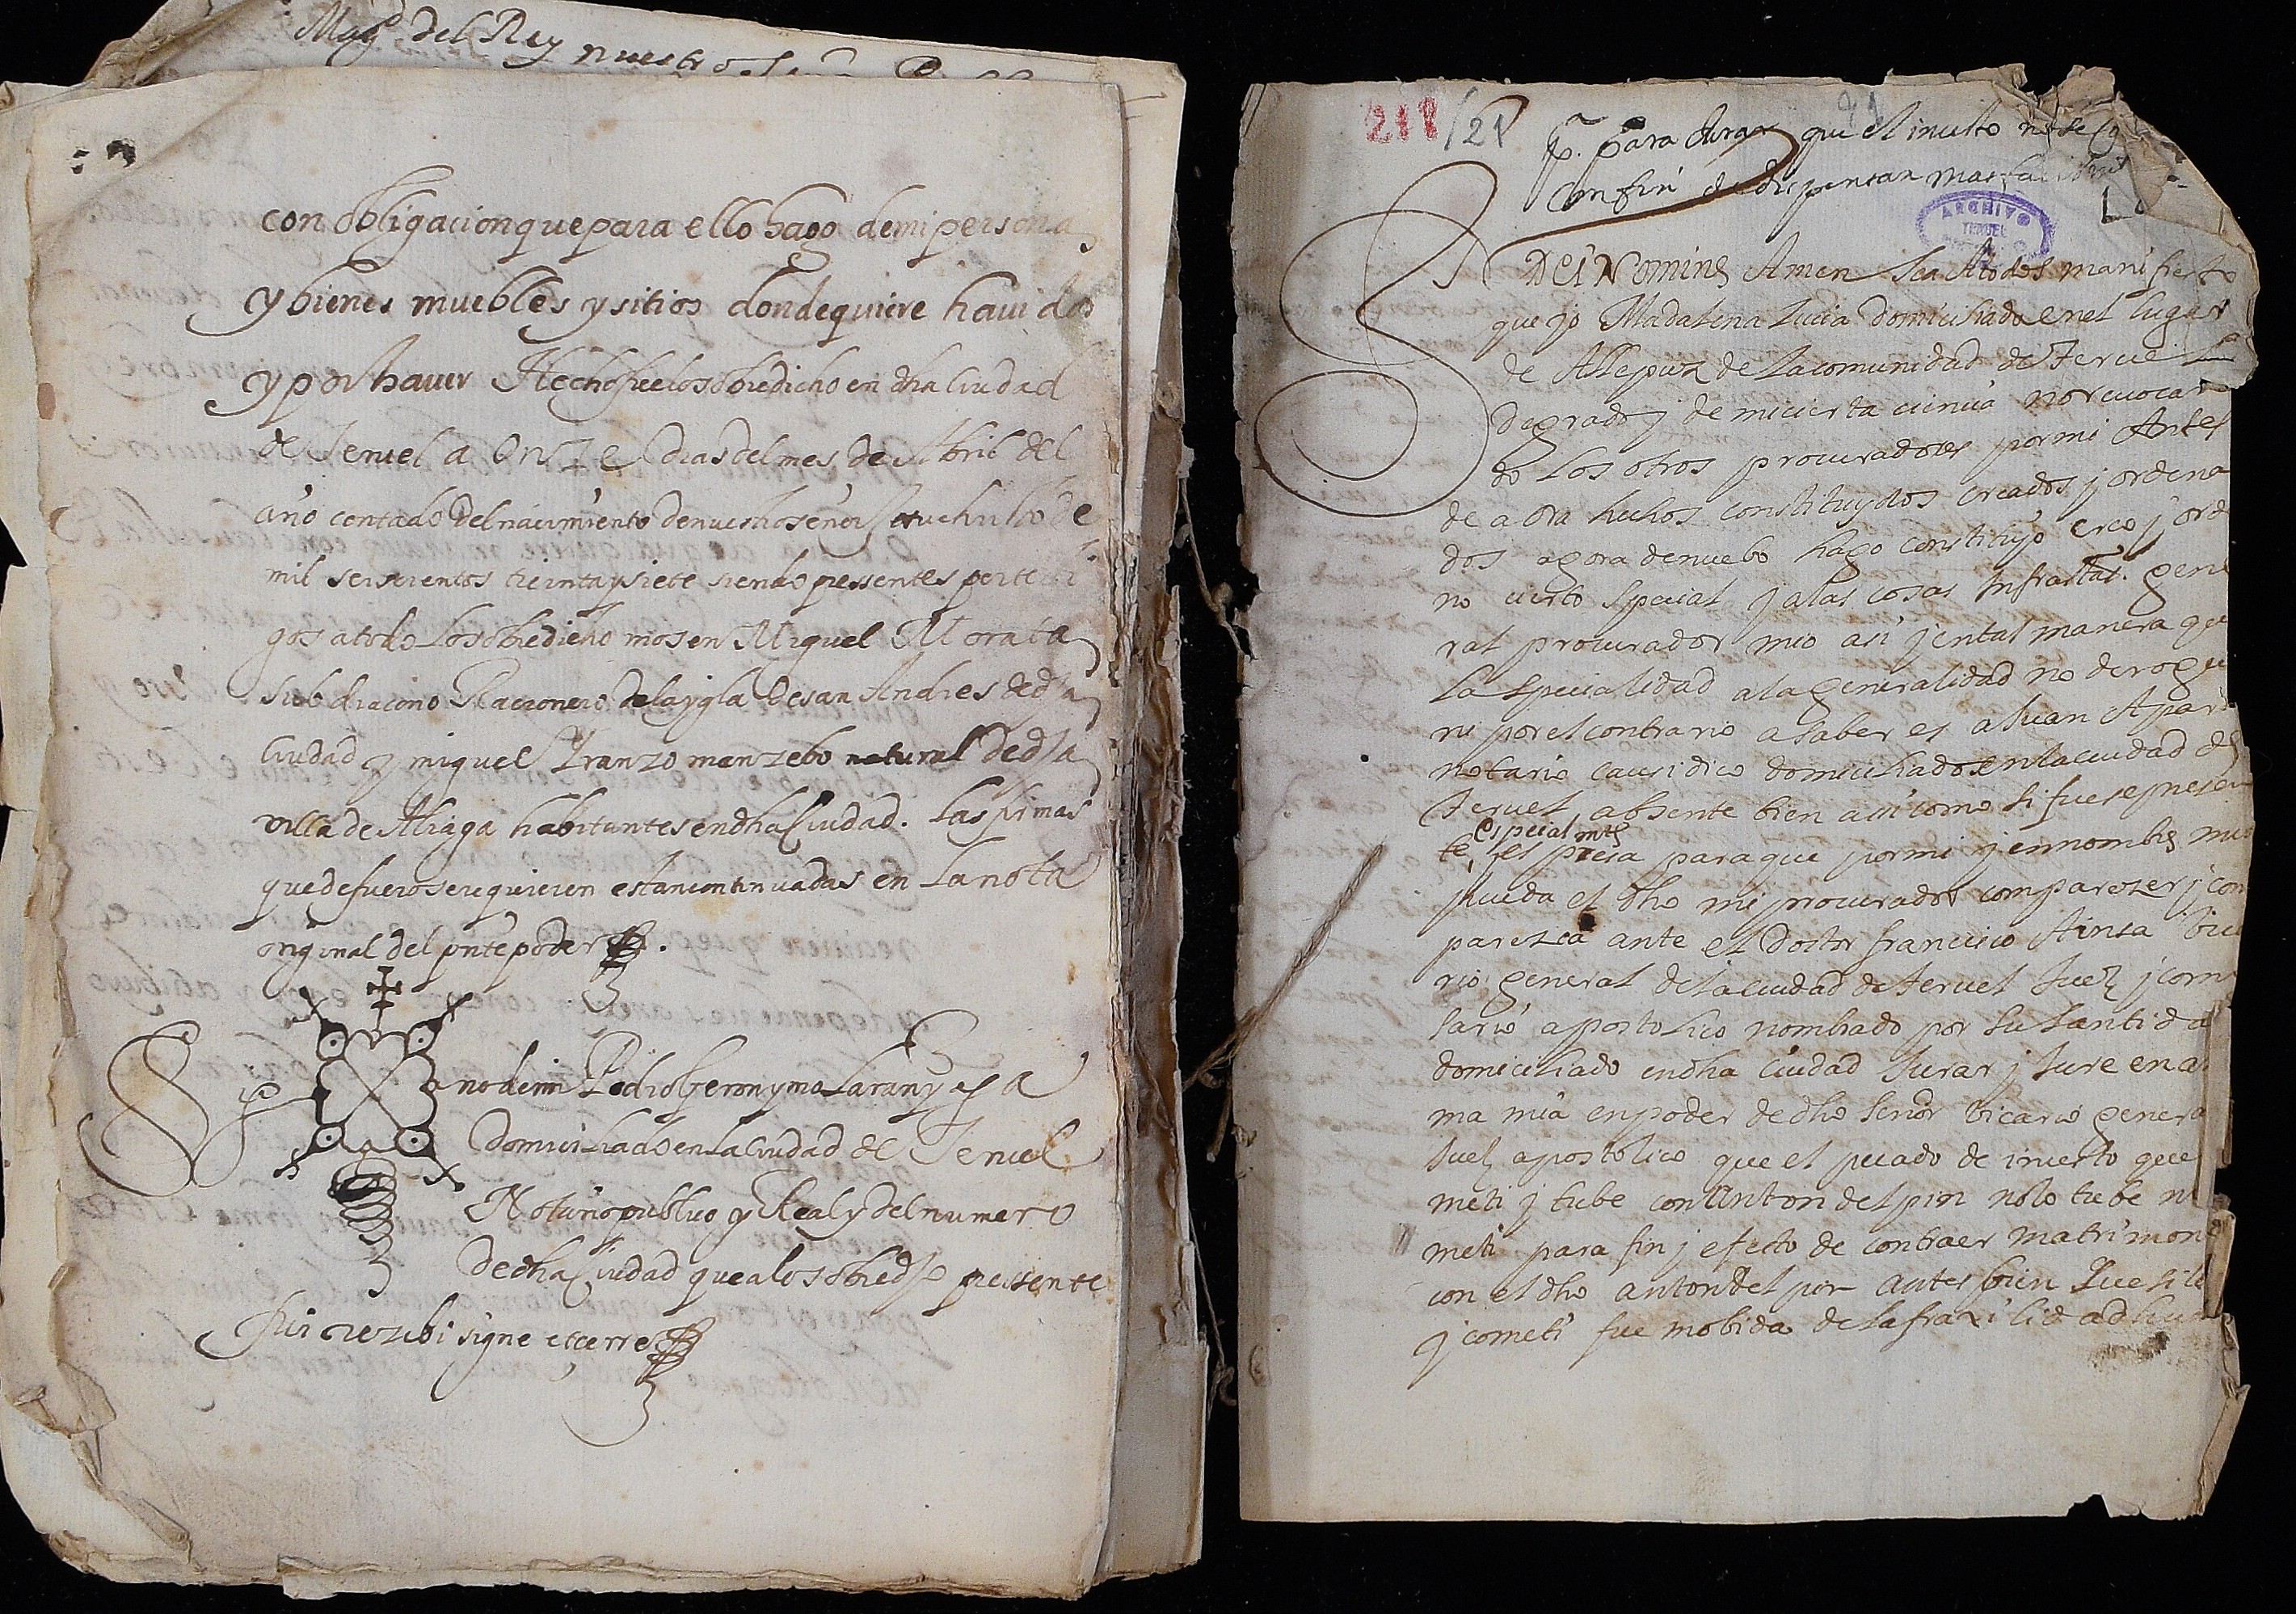 Magd del Rey nuestro
con obligacion que para ello hago de mi persona
y bienes muebles y sitios donde quiere havidos
y por haver Hecho fue lo sobredicho en dha Ciudad
de Teruel a Onze dias del mes de Abril del
año contado del nacimiento de nuestro señor Jesuchristo de
mil seiscientos treinta y siete siendo pressentes por testi
gos a todo lo sobredicho mosen Miguel Morata
subdiacono Racionero de la ygla de san Andres de dha
Ciudad y miguel Iranzo manzebo natural de dha
villa de Aliaga habitantes en dha Ciudad. Las firmas
que de fuero se requieren estan continuadas en la nota
original del pnte poder.
Sig no de mi Pedro Geronymo Laranja
Domiciliado en la Ciudad de Teruel
Notario publico y Real y del numero
de dha Ciudad que a lo sobredho pressente
fui rezebi signe et cerre
211 / 21
21
p. para Jurar que el incesto no se
con fin de dispensar mas facilmte
L
ARCHIVO
TERUEL
DEi Nomine Amen sea Atodos manifiesto
que yo Madalena Lucia domiciliada en el lugar
de Allepuz de la comunidad de Teruel
de grado j de mi cierta ciencia no revocan
do los otros procuradores por mi Antes
de aora hechos constituydos creados j ordena
dos agora de nuebo hago constituyo creo j ord
no cierto special j a las cosas Infraſtas. gene
ral procurador mio asi j en tal manera que
la specialidad a la generalidad no derogue
ni por el contrario a saber es a Juan Apari
notario causidico domiciliado en la ciudad de
Teruel absente bien asi como si fuese presen
te, especialmte espresa para que por mi j en nombre mio
pueda el dho mi procurador comparezer j com
parezca ante el Doctor francisco Ainsa vica
rio general de la ciudad de Teruel Juez j comi
sario apostolico nombrado por su santidad
domiciliado en dha Ciudad Jurar j Jure en a
ma mia en poder de dho señor vicario genera
Juez apostolico que el pecado de incesto que
meti j tube con Anton del pin no lo tube ni
meti para fin j efecto de contraer matrimoni
con el dho anton del pin antes bien que si lo
y cometi fue mobida de la fragilidad hum